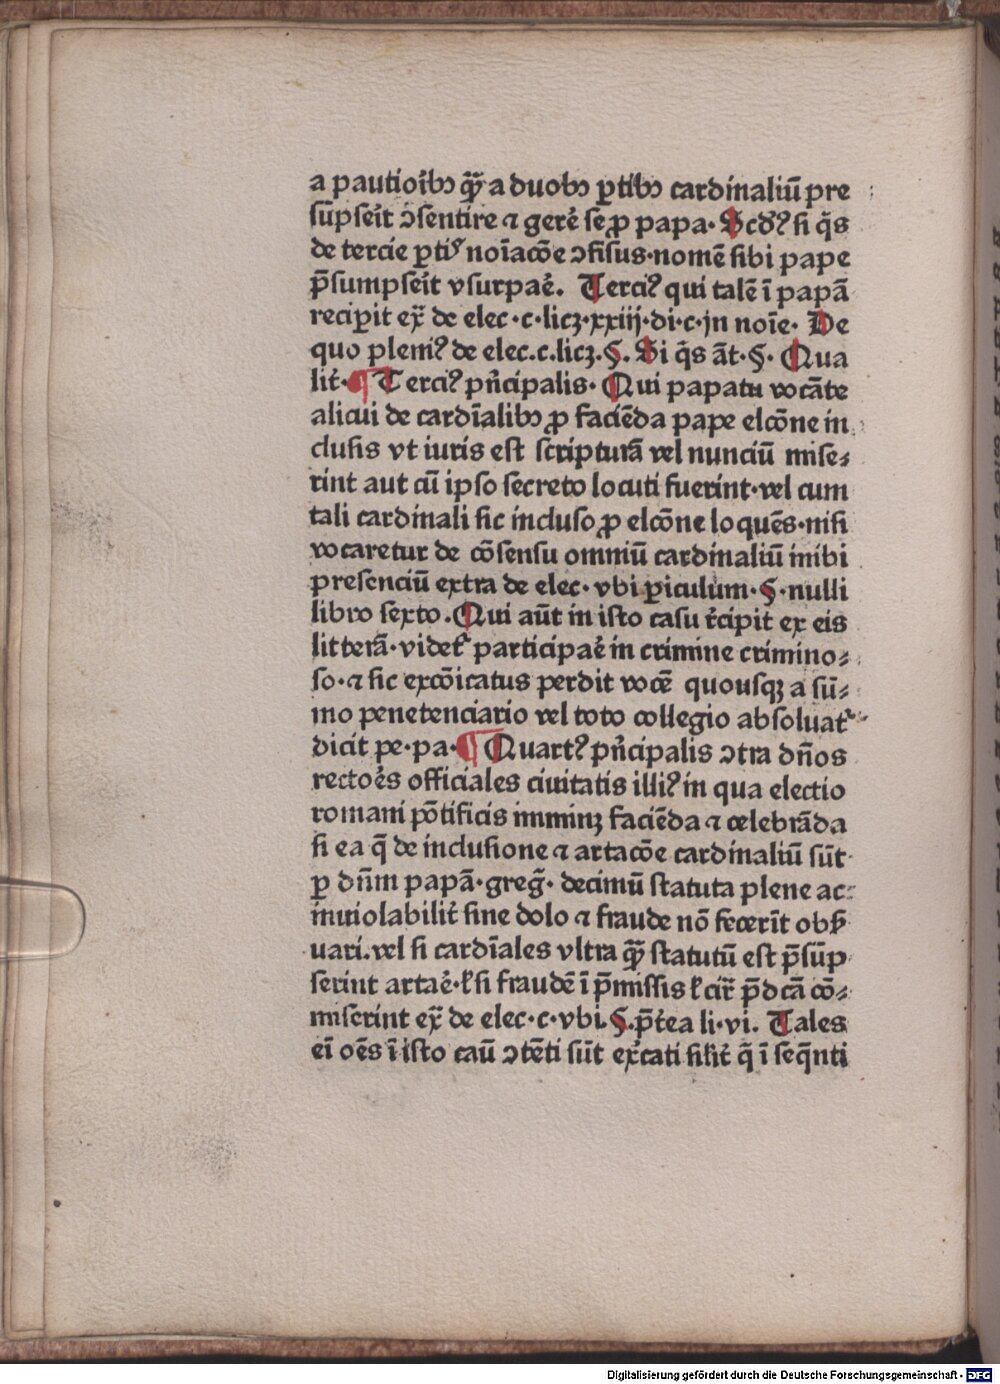 a pautioībꝫ qꝫ̄ a duobꝫ ꝑtibꝫ cardinaliū pre
sūpseīt ꝯsentire ⁊ gerē se ꝓ papa· Scd'ꝰ si q̄s
de tercie ꝑtiꝰ noīacōe ꝯfisus·nomē sibi pape
p̄sumpseīt vsurpaē. Terciꝰ qui talē ī papā
recipit ex̄ de elec·c·licꝫ·xxiij·di·c·jn noīe· De
quo pleniꝰ de elec.c.licꝫ.§. Si q̄s āt·§· Qua
lit̄·¶ Terciꝰ pn̄cipalis· Qui papatu vocāte
alicui de cardīalibꝫ ꝓ faciēda pape elcōne in
clusis vt iuris est scripturā vel nunciū mise⸗
rint aut cū ipso secreto locuti fuerint·vel cum
tali cardinali sic incluso ꝓ elcōne loquēs·nisi
vocaretur de cōsensu omniū cardinaliū inibi
presenciū extra de elec· vbi ꝑiculum·§·nulli
libro sexto·Qui aūt in isto casu r̄cipit ex eis
litterā·videt᷑ participaē in crimine crimino⸗
so·⁊ sic excōicatus perdit vocē quousqꝫ a sū⸗
mo penetenciario vel toto collegio absoluat᷑
dicit pe·pa·¶ Quartꝰ pn̄cipalis ꝯtra dn̄os
rectoēs officiales ciuitatis illiꝰ in qua electio
romani pōtificis imminꝫ faciēda ⁊ celebrāda
si ea q̄ de inclusione ⁊ artacōe cardinaliū sūt
ꝑ dn̄m papā·greḡ· decimū statuta plene ac
inuiolabilit̄ sine dolo ⁊ fraude nō fecerīt obẜ
uari.vel si cardīales vltra qꝫ̄ statutū est p̄sūp
serint artaē·ł si fraudē ī p̄missis ł cir̄ p̄dcā cō⸗
miserint ex̄ de elec·c·vbi.§.p̄t̄ea li·vi. Tales
eī oēs ī isto caū ꝯtēti sūt ex̄cati silit̄ q̄ ī seq̄nti
Digitalisierung gefördert durch die Deutsche Forschungsgemeinschaft - DFG